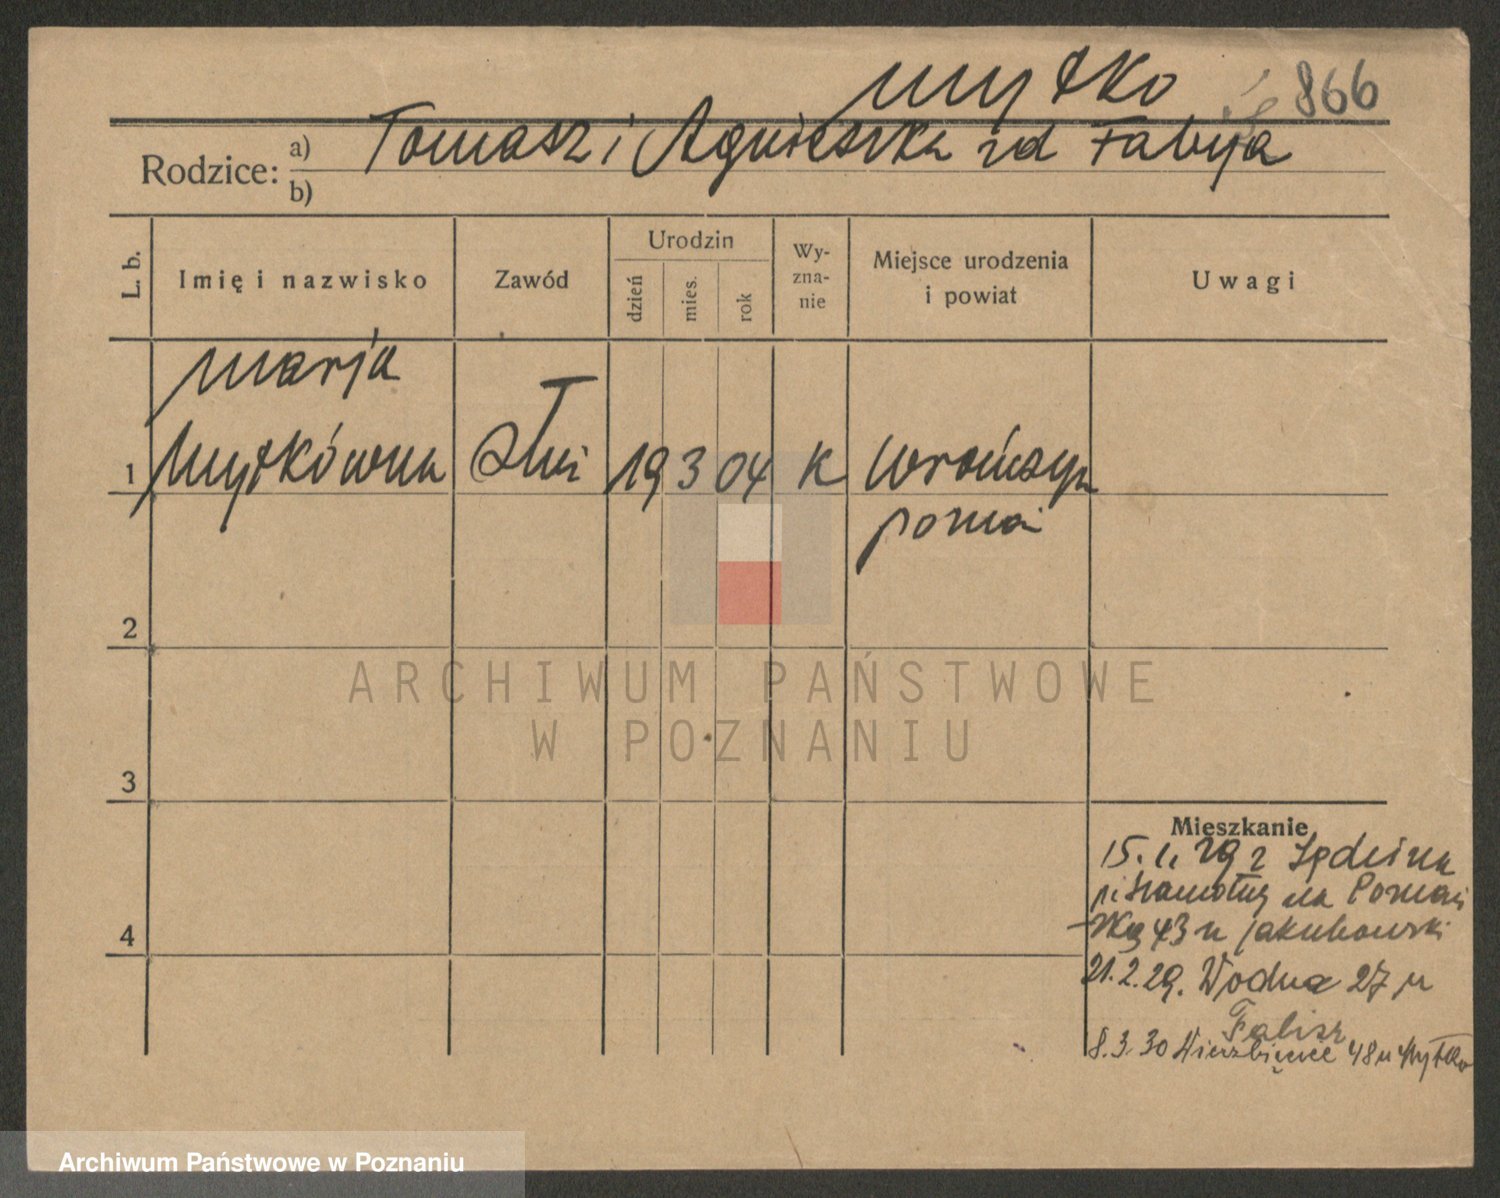 Mytko
866
Tomasz i Agnieszka zd Fabija
Rodzice: a)
b)
L. b.
Imię i nazwisko
Zawód
Urodzin
dzień
mies.
rok
Wy-
zna-
nie
Miejsce urodzenia
i powiat
Uwagi
Marja
1 Mytkówna służ 19 3 04 K Wrończyn
poznań
2
3
4
Mieszkanie
15. 1. 29 z Sędzina
p. Szamotuły na Poznań
43 u Jakubowski
21. 2. 29. Wodna 27 u
Falisz
8. 3. 30 Wierzbięcice 48 u Mytko
ARCHIWUM PAŃSTWOWE
W POZNANIU
Archiwum Państwowe w Poznaniu